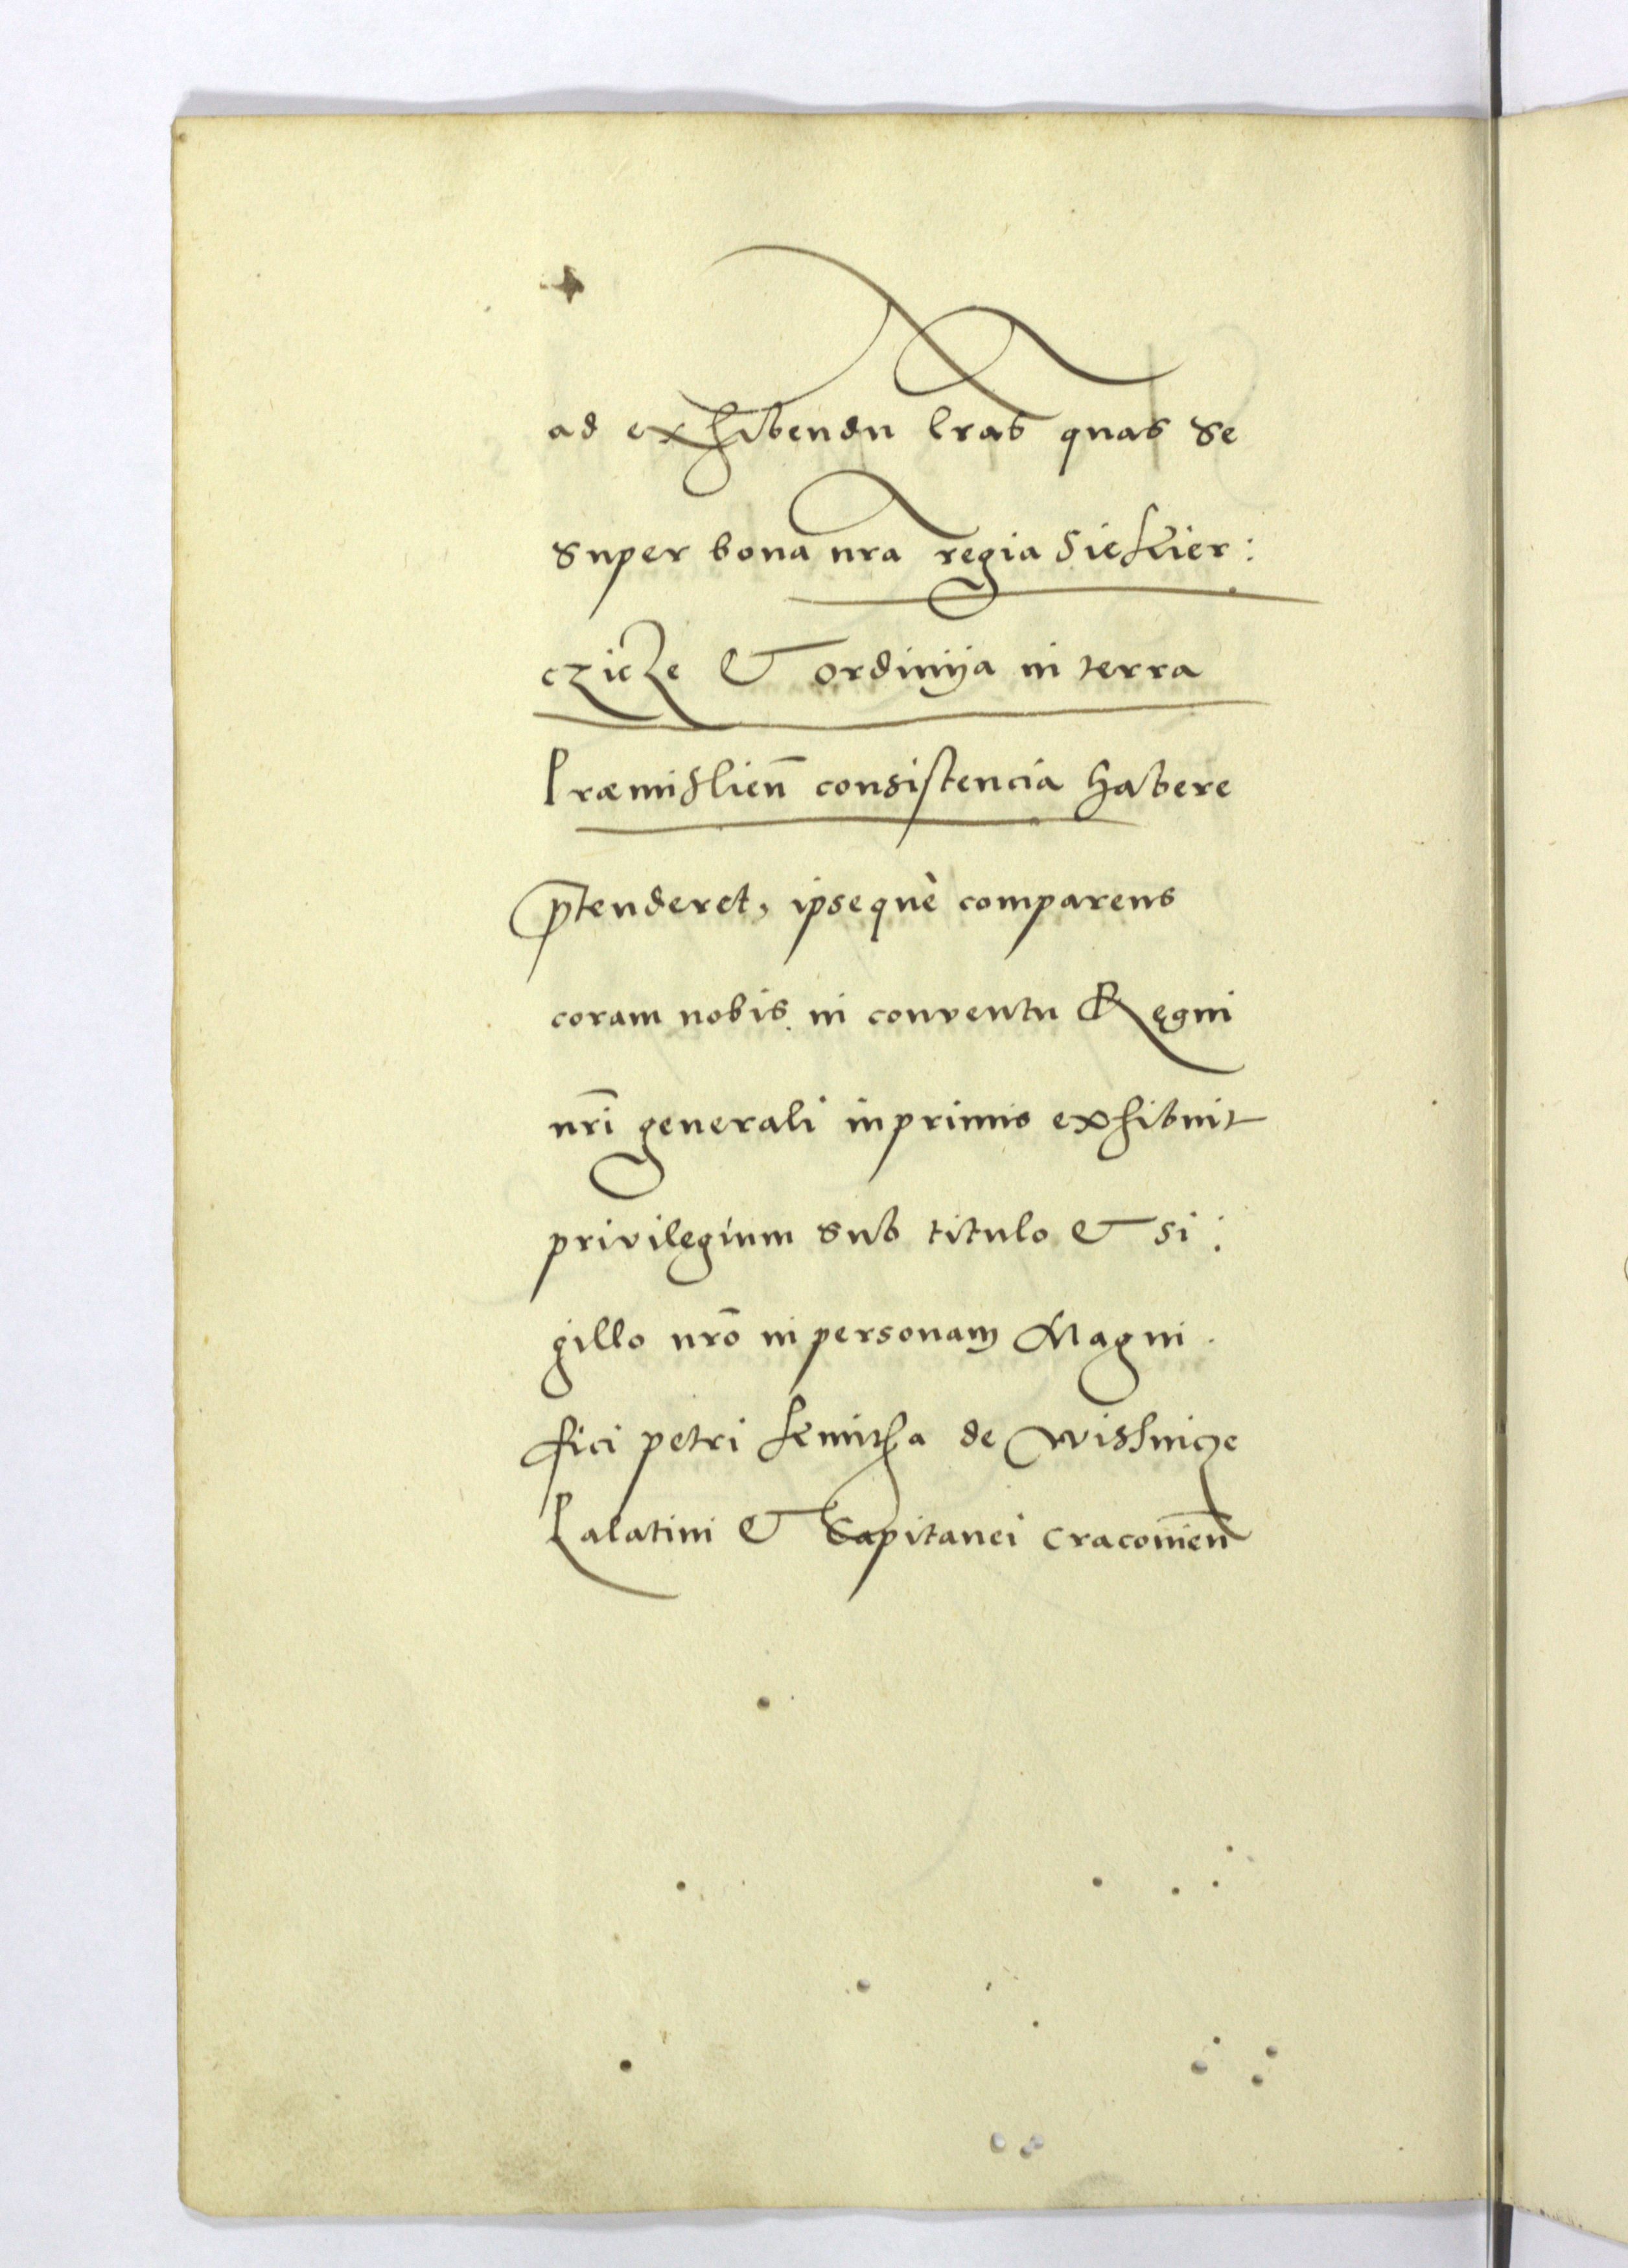 ad exhibendu lras quas se
super bona nra regia Siekier:
czicze & ordinija in terra
Præmislien̄ consistencia habere
p̄tenderet, ipsequè comparens
coram nobis in conventu Regni
nr̄i generali inprimis exhibuit
privilegium sub titulo & si:
gillo nrō in personam Magni
fici petri kmitha de wissnicze
Palatini & Capitanei Cracovien̄